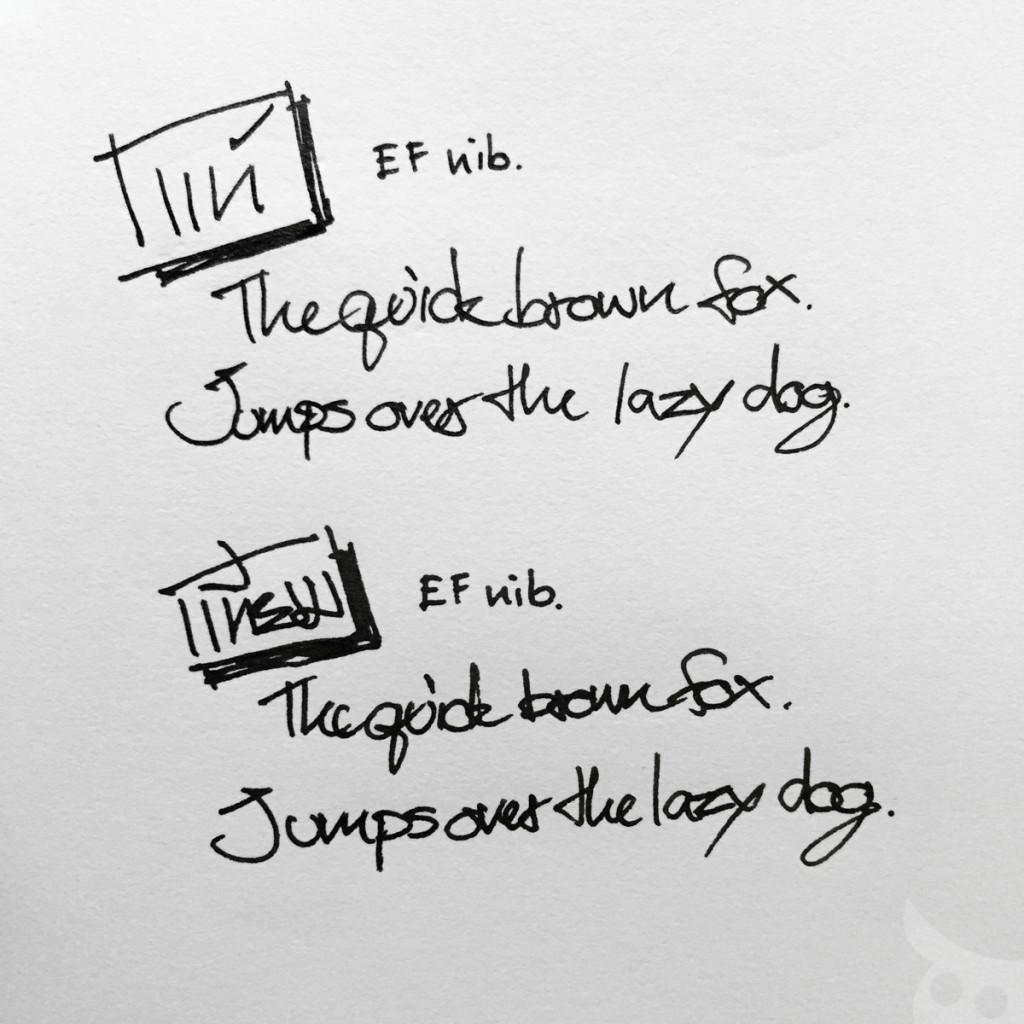 EF nib.
The quick brown fox.
Jumps over the lazy dog.
EF nib.
The quick brown fox.
Jumps over the lazy dog.